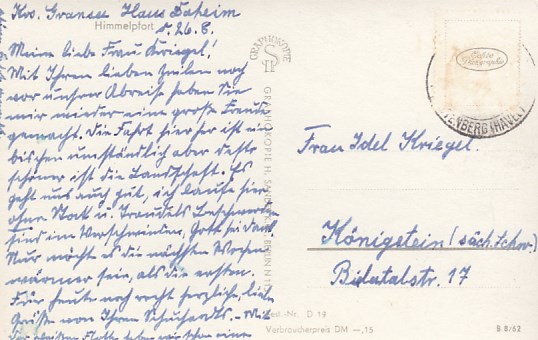 Krs. Gransee Haus Daheim
Himmelpfort d. 26.8.
Meine liebe Frau Kriegel!
Mit Ihren lieben Zeilen noch
vor unsrer Abreise haben Sie
mir wieder eine große Freude
gemacht. Die Fahrt hierher ist ein
bischen umständlich aber desto
schöner ist die Landschaft. Es
geht uns auch gut, ich laufe hier
ohne Stock u. Traudels Beschwerden
sind im Verschwinden, Gott sei Dank.
Nur möcht es die nächsten Wochen
wärmer sein, als die ersten.
Für heute noch recht herzliche, liebe
Grüße von Ihren Schuhardts. - Mit
der weißen Flotte haben wir schon eine
GRAPHOKOPIE
SH
GRAPHOKOPIE H. BERLIN N
Echte
Photographie
BERG (HAVEL)
Frau Idel Kriegel.
Königstein (sächs. Schw.)
Bielatalstr. 17
Best.-Nr. D 19
Verbraucherpreis DM -,15
B 8/62